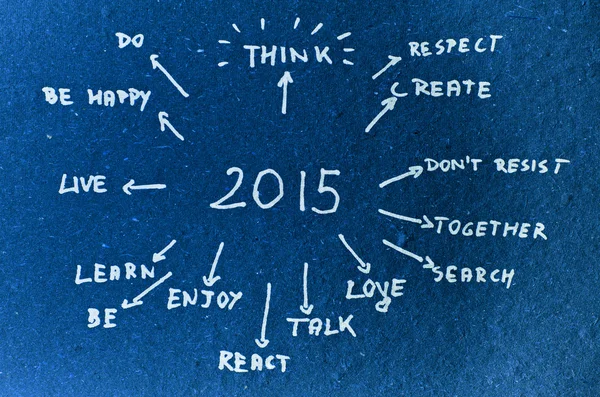 DO
THINK
RESPECT
BE HAPPY
CREATE
LIVE
2015
DON'T RESIST
TOGETHER
LEARN
SEARCH
BE
ENJOY
LOVE
TALK
REACT